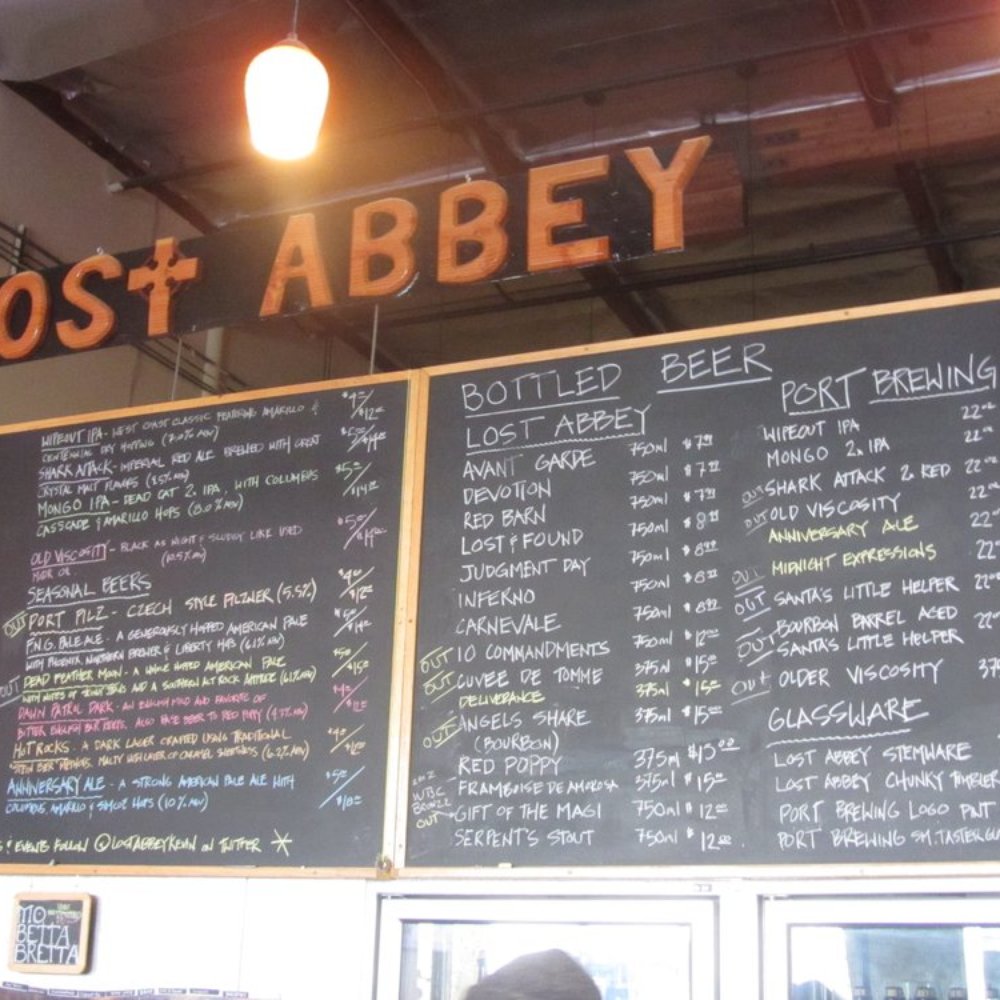 OST ABBEY
WIPEOUT IPA - WEST COAST CLASSIC FEATURING AMARILLO &
CENTENNIAL DRY HOPPING (7.0% ABV)
SHARK ATTACK - IMPERIAL RED ALE BREWED WITH GREAT
CRYSTAL MALT FLAVORS
MONGO IPA - DEAD CAT 2x IPA, WITH COLUMBUS
CASSCADE & AMARILLO HOPS (8.0% ABV)
OLD VISCOSITY - BLACK AS NIGHT & SLUDGY LIKE USED
MOTOR OIL (10.5% ABV)
SEASONAL BEERS
OUT PORT PILZ - CZECH STYLE PILZNER (5.5%)
P.N.G. PALE ALE - A GENEROUSLY HOPPED AMERICAN PALE
WITH PHOENIX, NORTHERN BREWER & LIBERTY HOPS (6.1% ABV)
OUT DEAD FEATHER MOON - A WHOLE HOPPED AMERICAN PALE
AND A SOUTHERN ALT ROCK ATTITUDE
DAWN PATROL DARK - AN ENGLISH MILD AND FAVORITE OF
BITTER ENGLISH BAR KEEPS. ALSO BASE BEER TO RED POPPY
HOT ROCKS - A DARK LAGER CRAFTED USING TRADITIONAL
STEIN BIER METHODS. MALTY WITH LAYER OF CARAMEL SWEETNESS (6.2% ABV)
ANNIVERSARY ALE - A STRONG AMERICAN PALE ALE WITH
COLUMBUS, AMARILLO & SIMCOE HOPS (10% ABV)
& EVENTS FOLLOW @LOSTABBEYKEVIN ON TWITTER
BOTTLED BEER
LOST ABBEY
AVANT GARDE 750ml
DEVOTION 750ml
RED BARN 750ml
LOST & FOUND 750ml
JUDGMENT DAY 750ml
INFERNO 750ml
CARNEVALE 750ml
OUT 10 COMMANDMENTS 750ml
OUT CUVEE DE TOMME 375ml $15
DELIVERANCE 375ml $15
OUT ANGELS SHARE 375ml $15
(BOURBON)
RED POPPY 375ml $15.00
FRAMBOISE DE AMOROSA 375ml $15
BRONZE
OUT GIFT OF THE MAGI 750ml $12
SERPENT'S STOUT 750ml $12
PORT BREWING
WIPEOUT IPA 22
MONGO 2x IPA 22
OUT SHARK ATTACK 2x RED 22
OUT OLD VISCOSITY 22
ANNIVERSARY ALE 22
MIDNIGHT EXPRESSIONS 22
OUT SANTA'S LITTLE HELPER 22
OUT BOURBON BARREL AGED 22
SANTA'S LITTLE HELPER
OUT OLDER VISCOSITY 37
GLASSWARE
LOST ABBEY STEMWARE
LOST ABBEY CHUNKY TUMBLER
PORT BREWING LOGO PINT
PORT BREWING SM. TASTER
MO
BETTA
BRETTA